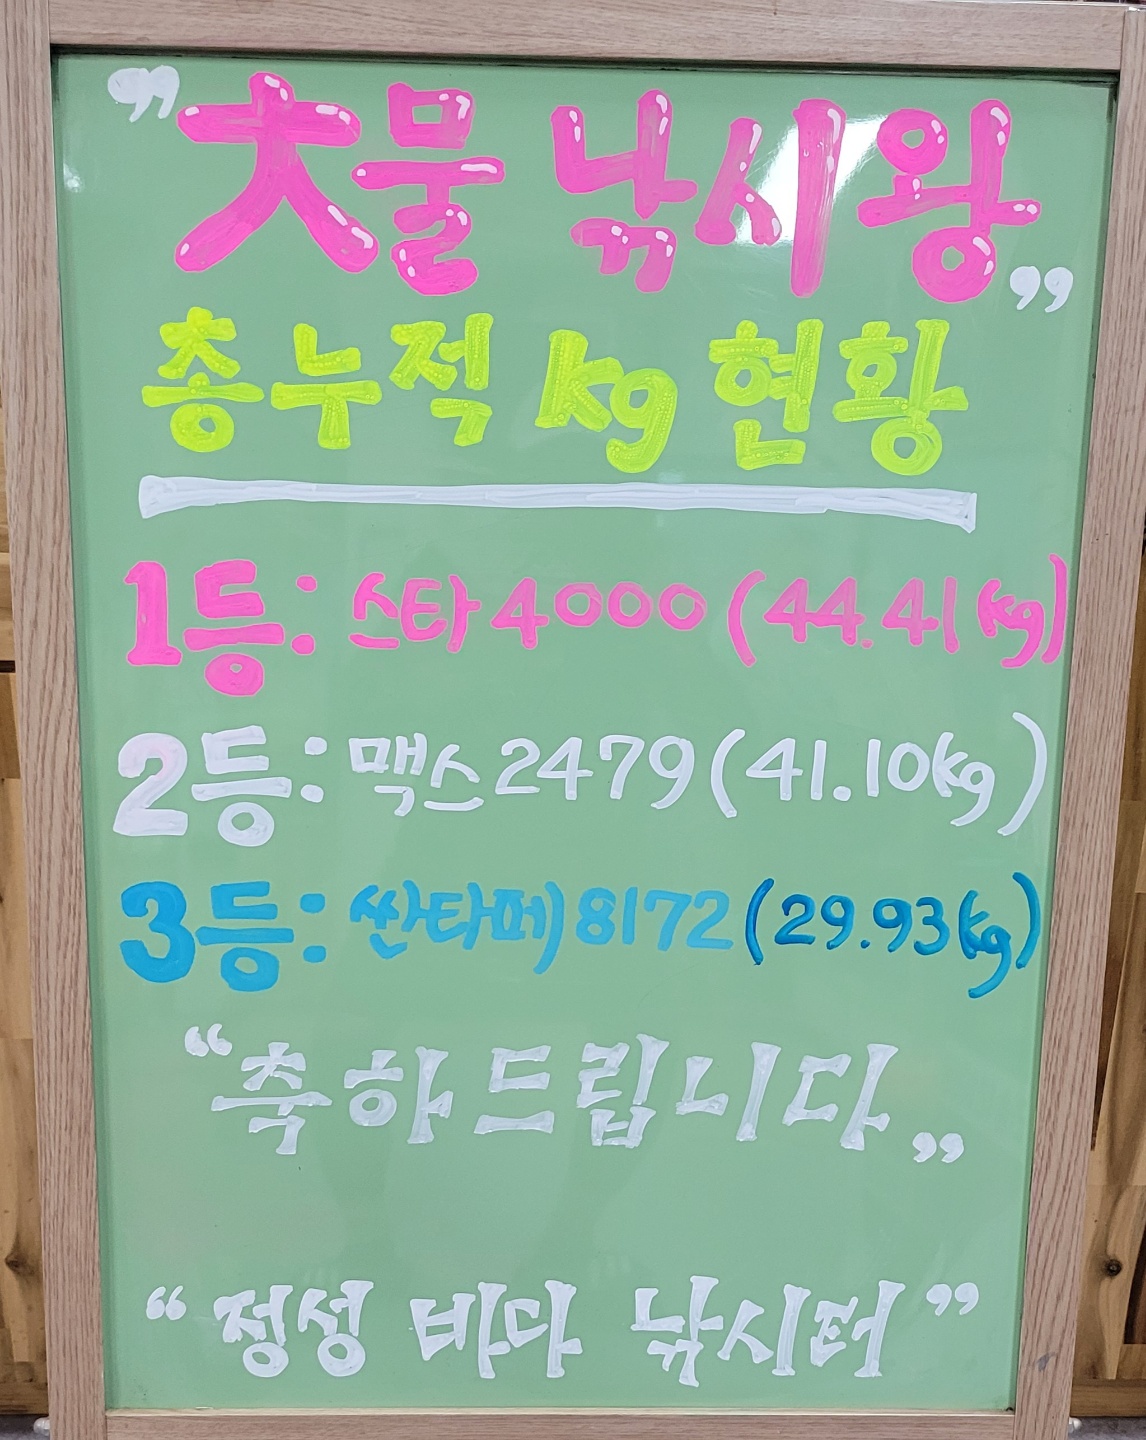 "大물 낚시왕"
총누적 kg 현황
1등: 스타4000 (44.41kg)
2등: 맥스2479 (41.10kg)
3등: 싼타페8172 (29.93kg)
"축하드립니다"
"정성 바다 낚시터"